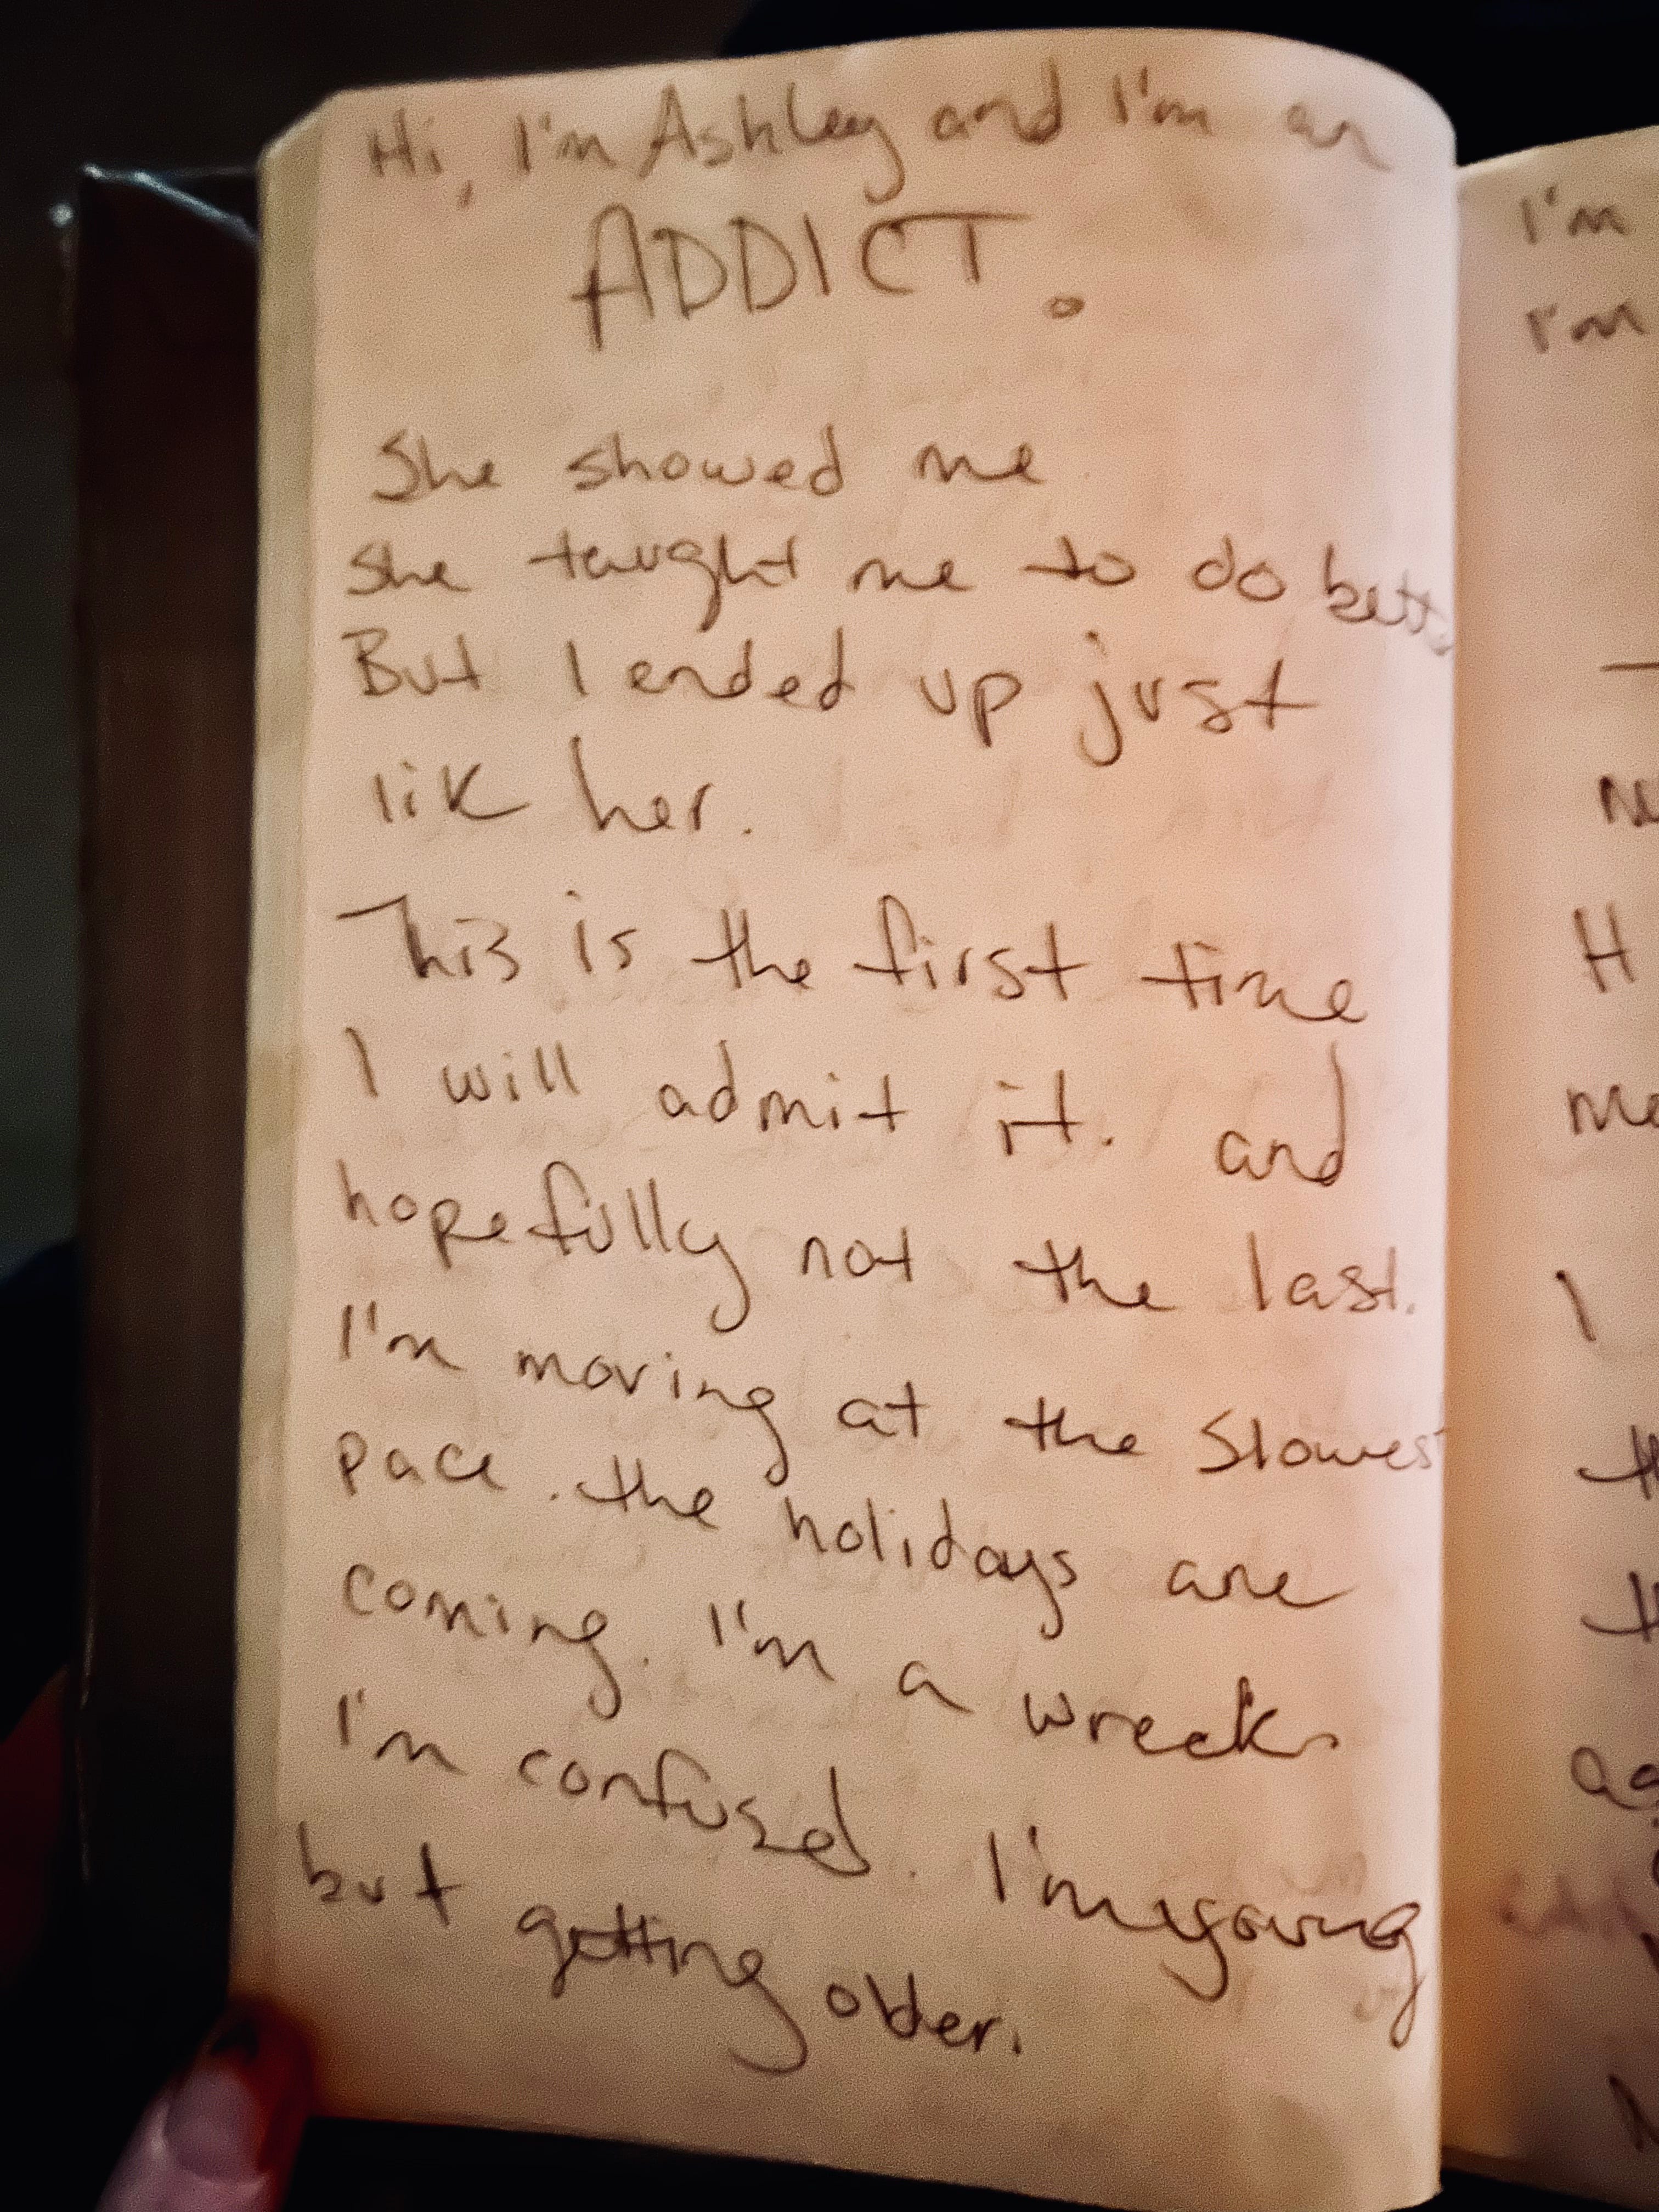 Hi, I'm Ashley and I'm an
ADDICT.
She showed me
She taught me to do bett
But I ended up just
lik her.
This is the first time
I will admit it. and
hopefully not the last.
I'm moving at the slowest
pace. the holidays are
coming. I'm a wreck
I'm confused. I'm young
but getting older.
I'm
I'm
H
I